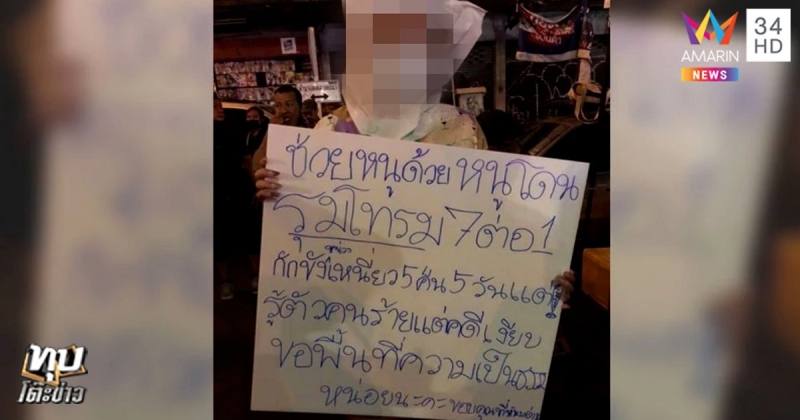 AMARIN
NEWS
34
HD
ช่วยหนูด้วยหนูโดน
รุมโทรม 7 ต่อ 1
กักขังหน่วงเหนี่ยว 5 คืน 5 วัน แต่
รู้ตัวคนร้ายแต่คดีเงียบ
ขอพื้นที่ความเป็นธรรม
หน่อยนะคะ ขอบคุณที่
ทุบ
โต๊ะข่าว